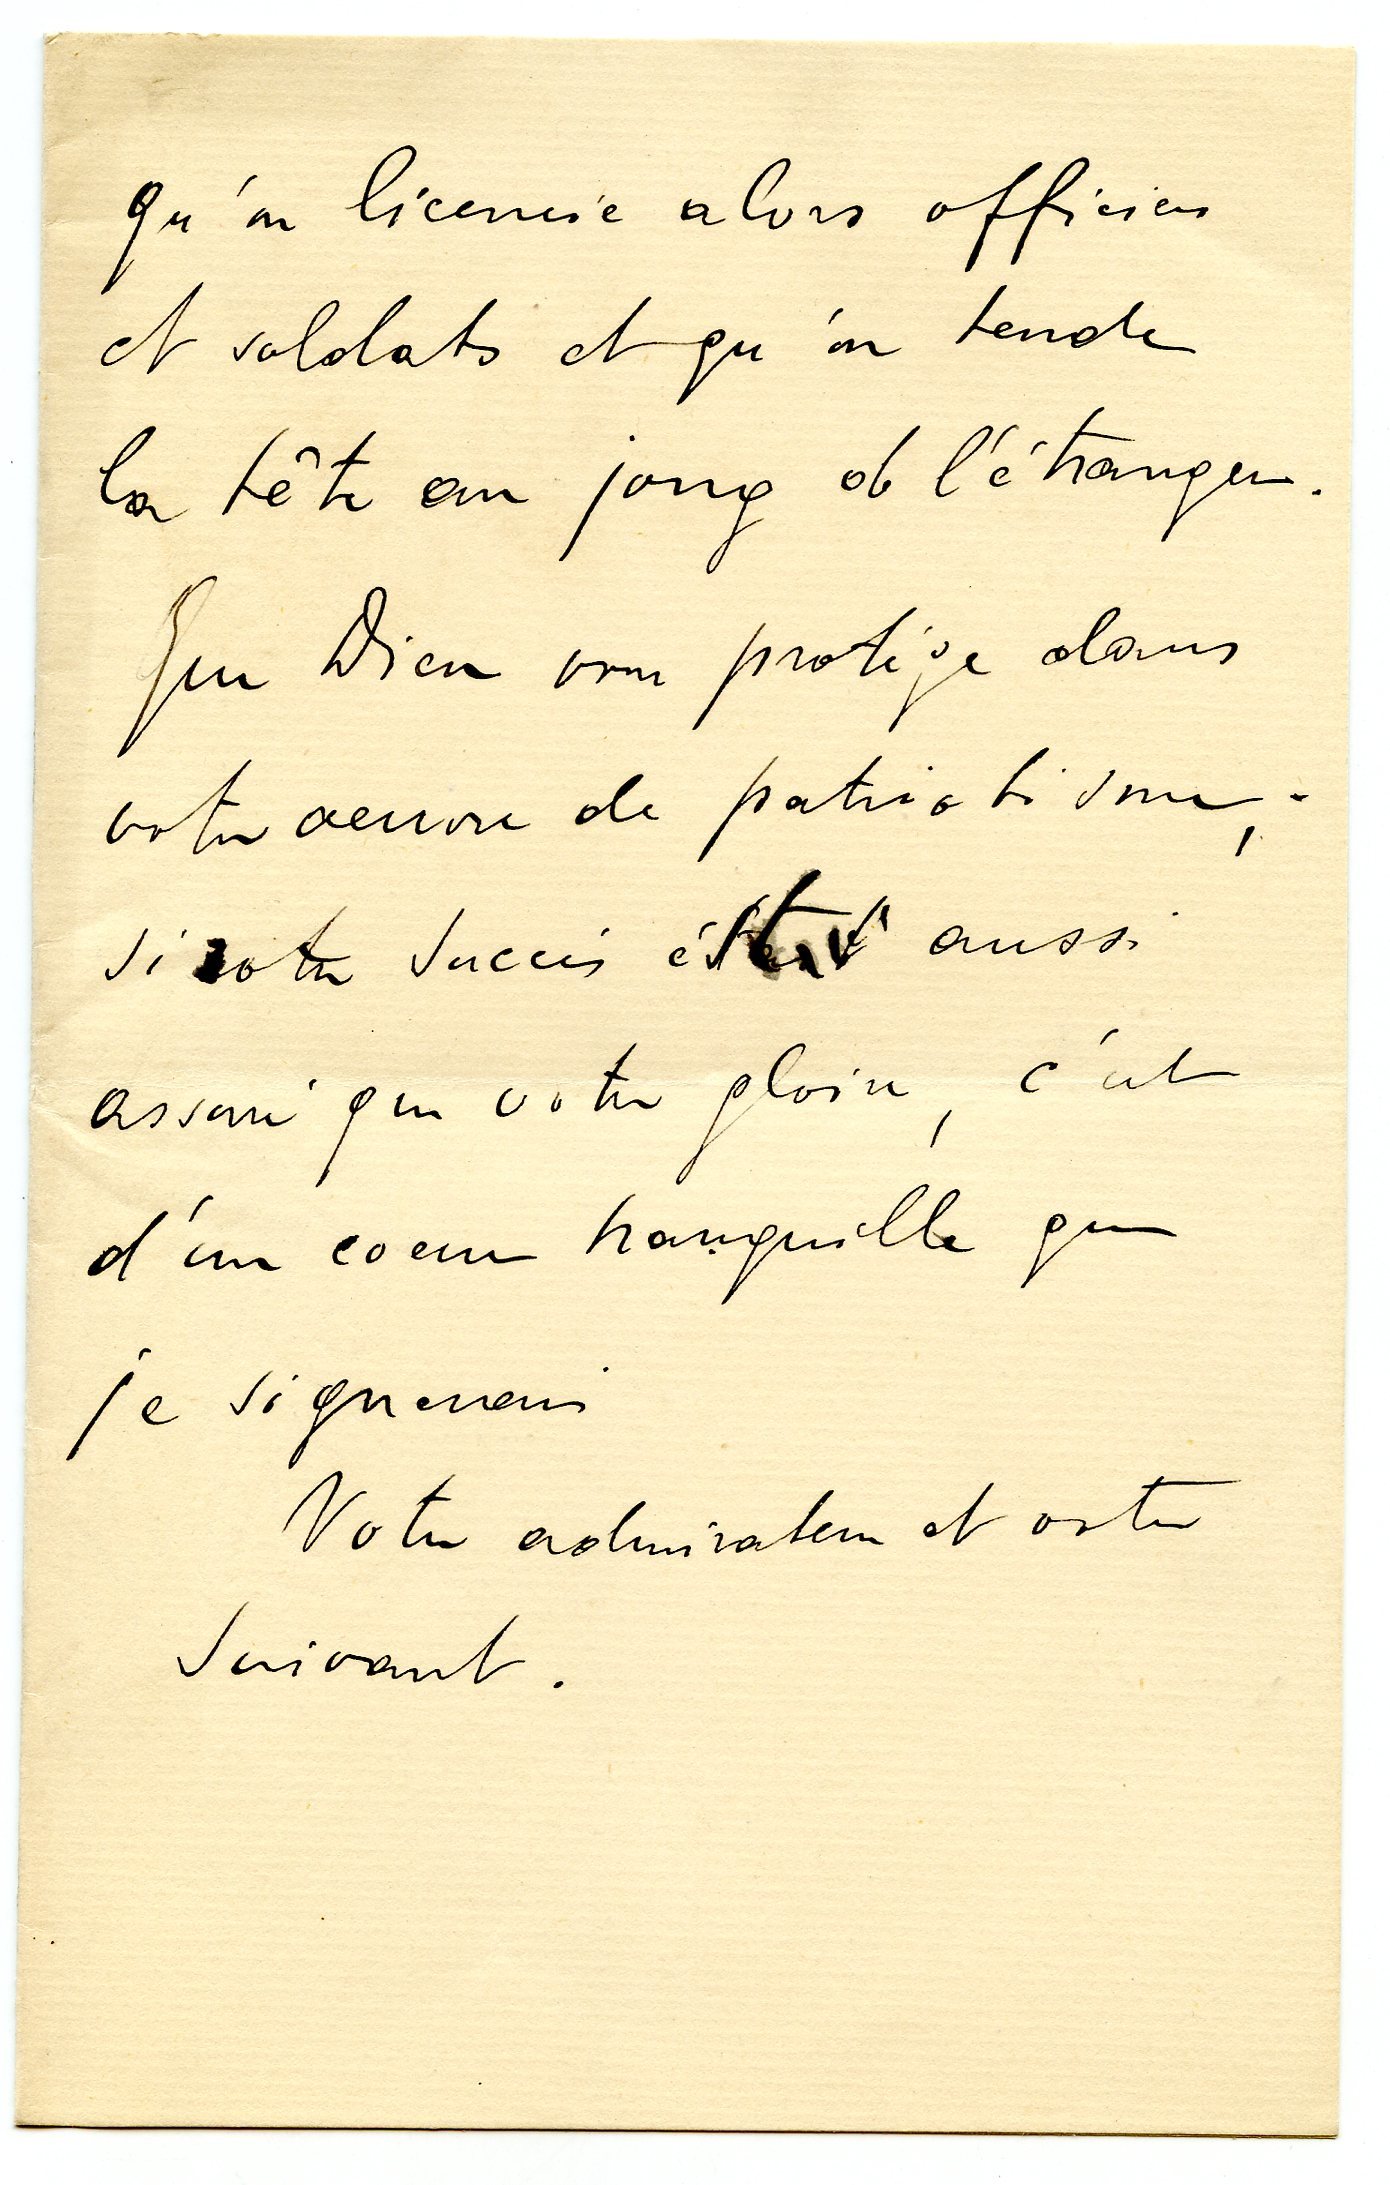 qu'on licencie alors officiers
et soldats et qu'on tende
la tête au joug de l'étranger.
Que Dieu vous protège dans
votre oeuvre de patriotisme ;
si votre succès était aussi
assuré que votre gloire, c'est
d'un coeur tranquille que
je signerais
Votre admirateur et votre
suivant.